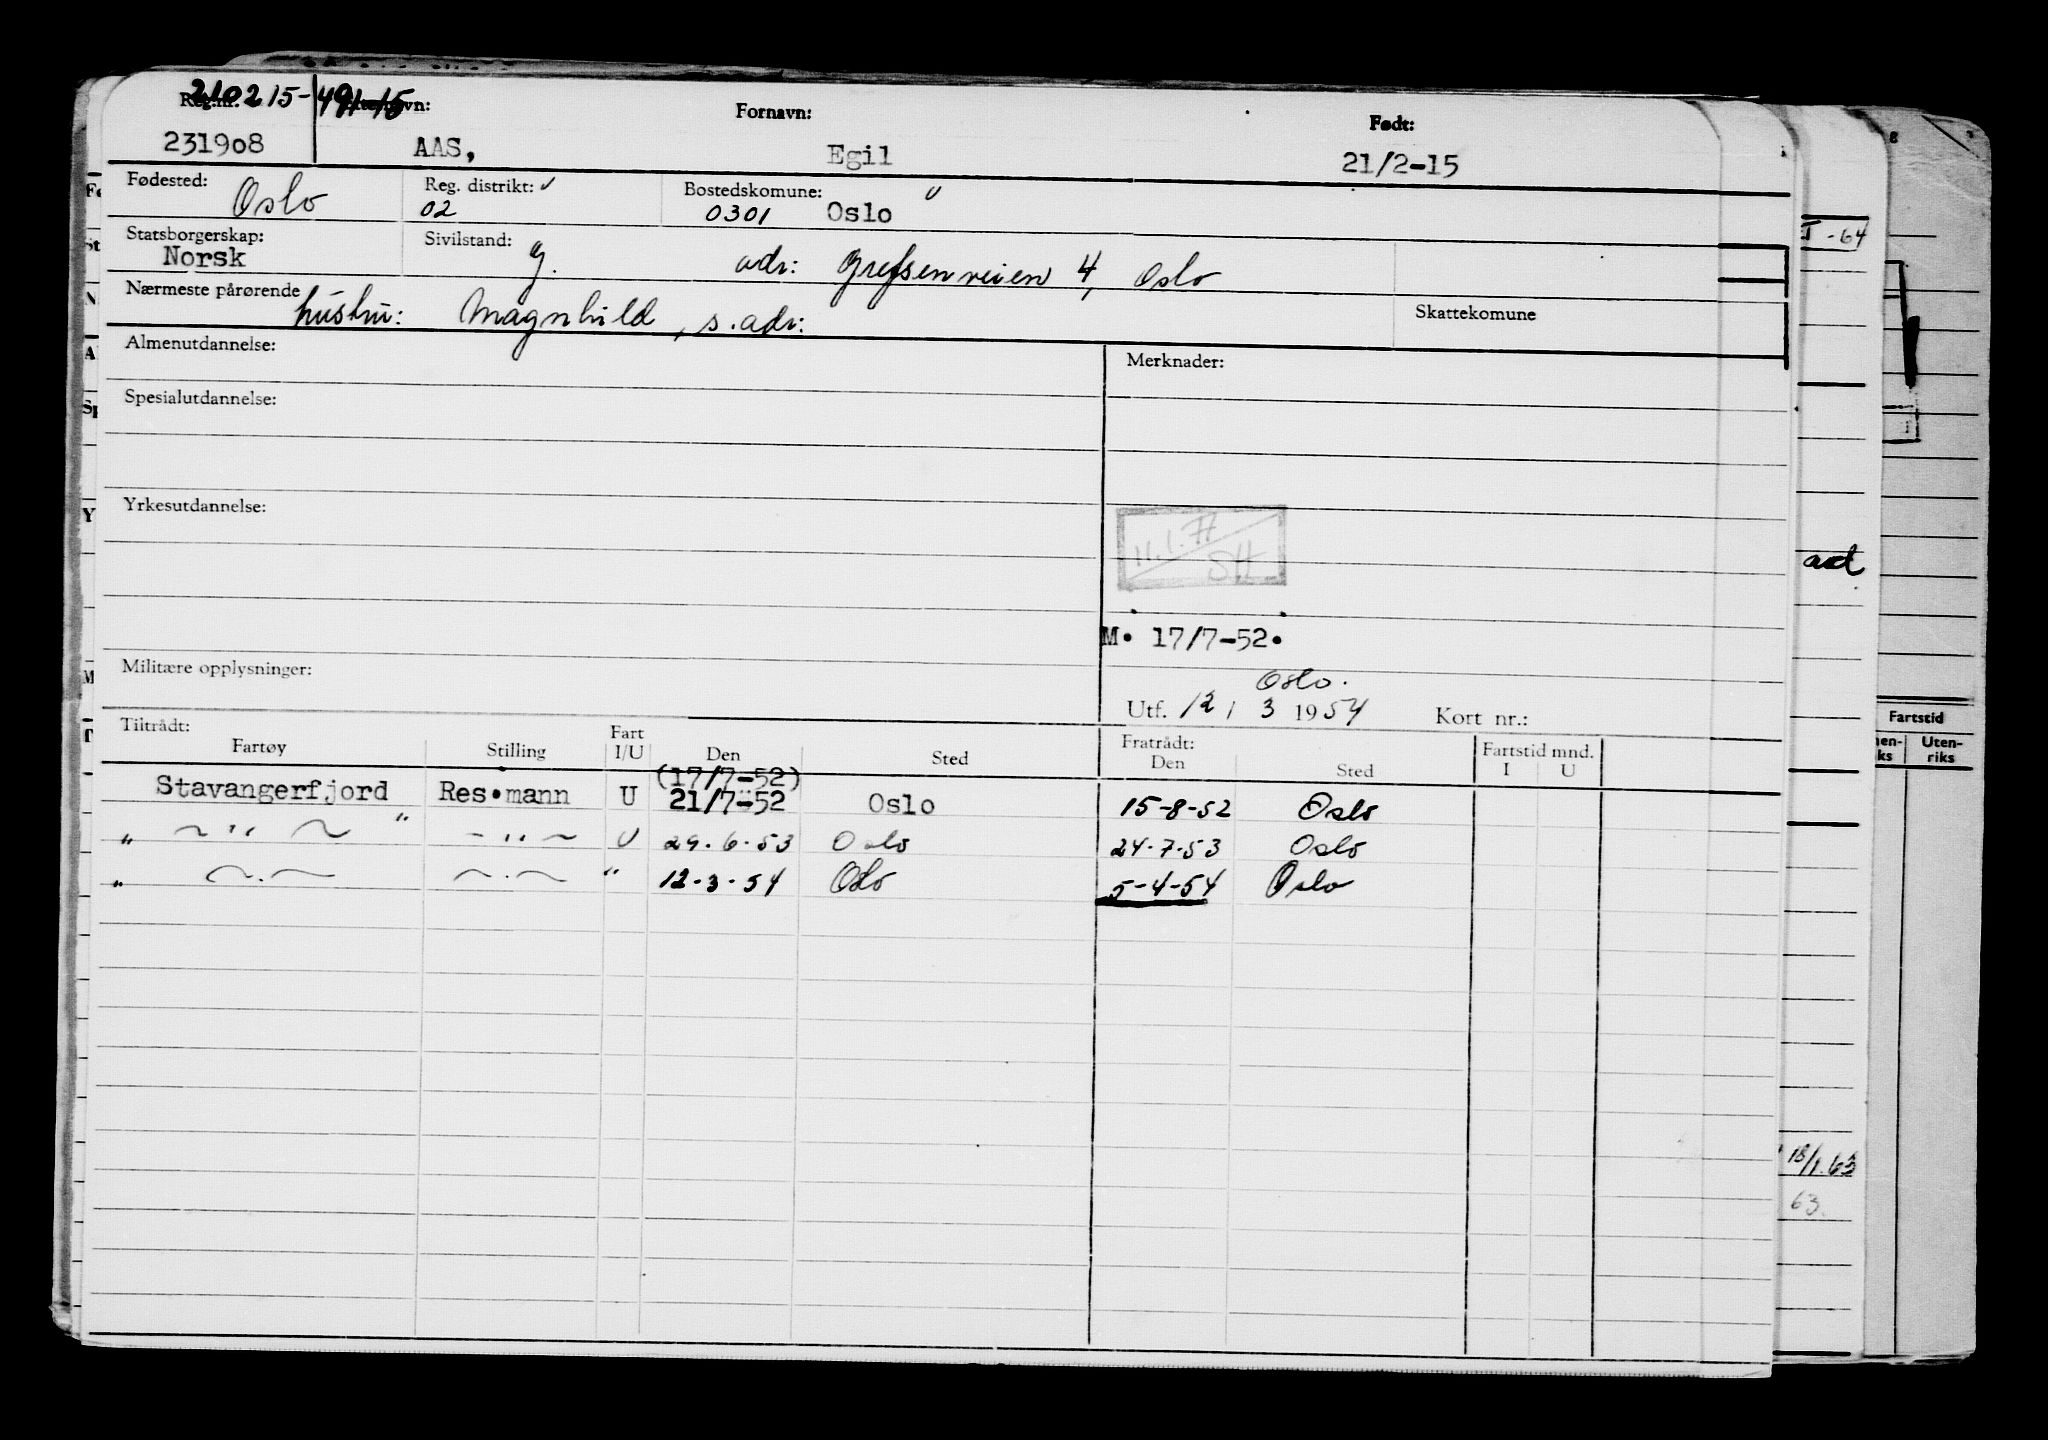 210215-491-15
Reg.nr. Etternavn: Fornavn: Født:
231908 AAS, Egil 21/2-15
Fødested: Oslo Reg. distrikt: 02 Bostedskommune: 0301 Oslo
Statsborgerskap: Norsk Sivilstand: g. adr: Grefsenveien 4, Oslo
Nærmeste pårørende hustru: Magnhild, s. adr: Skattekomune
Almenutdannelse: Merknader:
Spesialutdannelse:
Yrkesutdannelse:
11.1.71
SH
M. 17/7-52.
Militære opplysninger:
Oslo.
Utf. 12 / 3 1954 Kort nr.:
Tiltrådt: Fart Fratrådt: Fartstid mnd.
Fartøy Stilling I/U Den Sted Den Sted I U
(17/7-52)
Stavangerfjord Res.mann U 21/7-52 Oslo 15-8-52 Oslo
" ~ " ~ " - " ~ U 29.6.53 Oslo 24.7.53 Oslo
" ~ . ~ ~ . ~ " 12.3.54 Oslo 5-4-54 Oslo
I-64
ad
18/1.63
63.
Fartstid
Uten-
riks